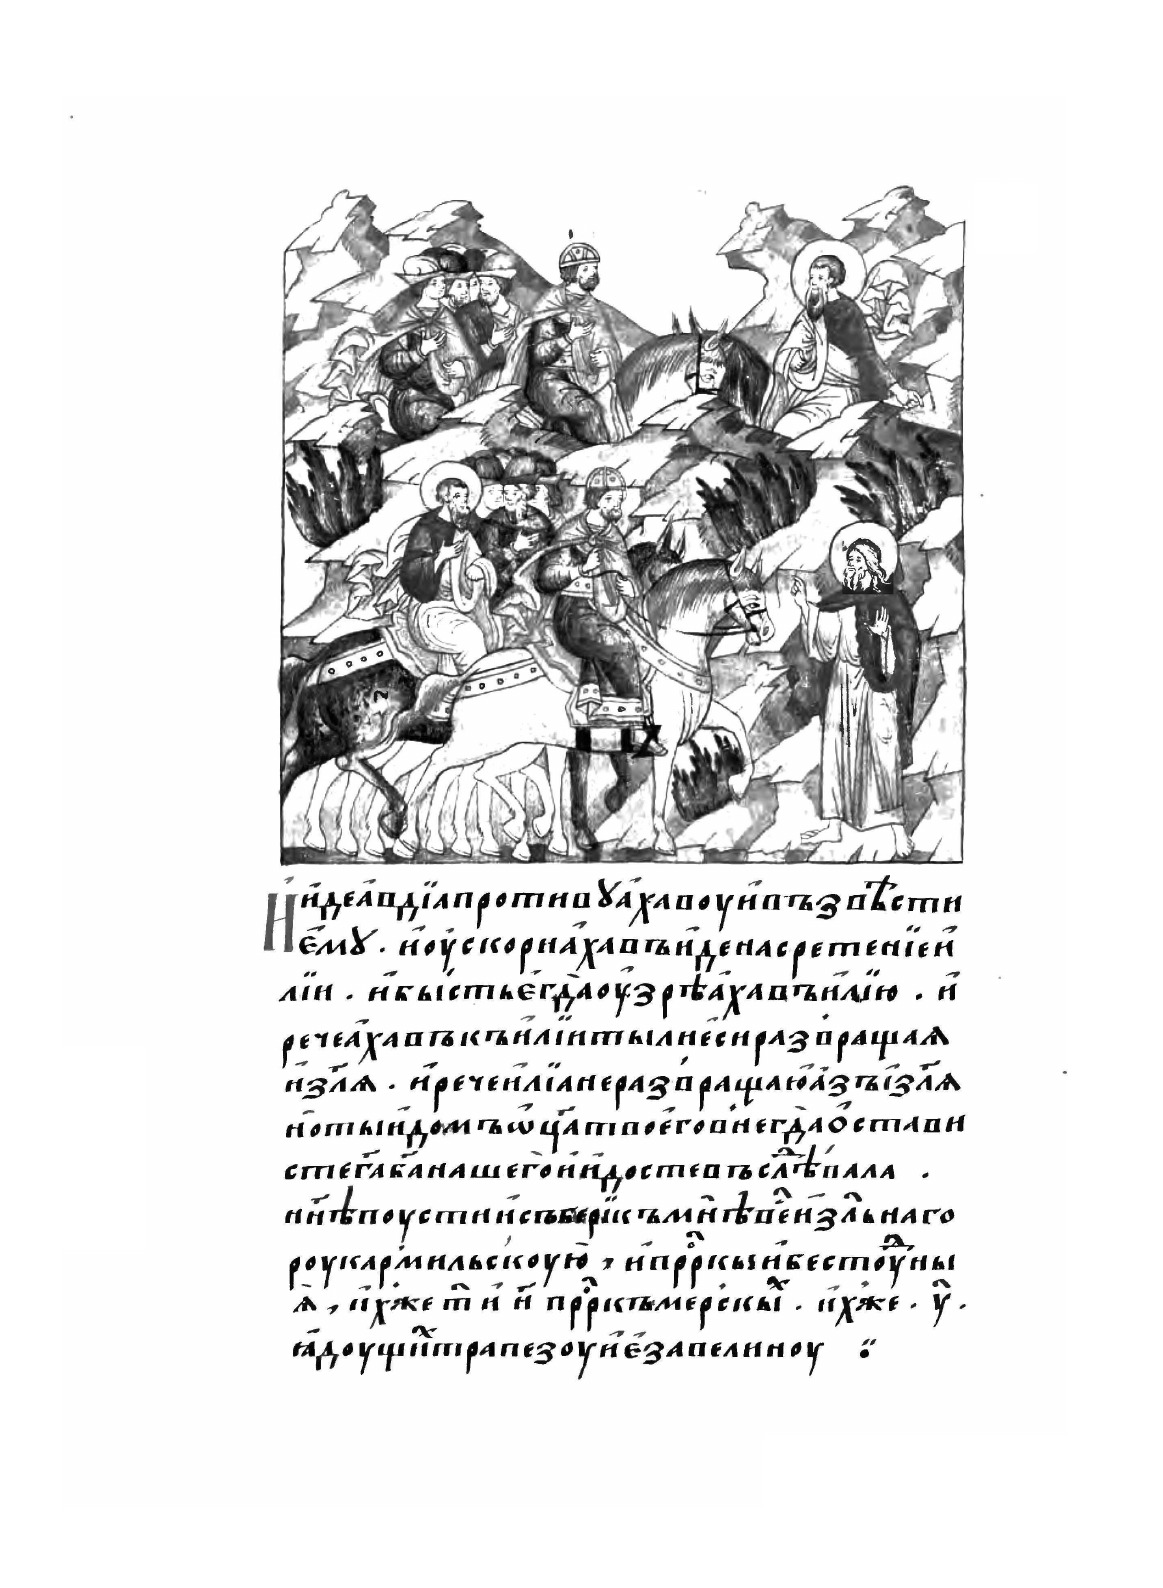 И҆и҆деа҆вдїапротивꙋа҆хавоуи҆възвѣсти
е҆мꙋ. и҆оу҆скориа҆хавъи҆денасретенїеи҆
лїи . и҆бы́стьегда̀оу҆зрѣа҆хавъи҆лїю . и҆
речеа҆хавъкъи҆лїитылиеси҆развращаѧ
и҆зл҃ѧ . и҆речеи҆лїанеразвращаюа҆зъі҆зл҃ѧ
нотыи҆домъѡц҃атвоего҆внегда̀о҆стави
стег҃аб҃анашегои҆и҆достевъслѣ́ваала
нн҃ѣпоустии҆съберїкъмнѣ̀ве́и҆зл҃ьнаго
роукарми́льскоую̀ , и҆прⷪ҇ркыи҆бестоу́дны
ѧ̀ , и҆хже т҃ и҆ н҃ прⷪ҇ркъмерскы́ⷯ . и҆хже . у҃ .
ꙗ҆доущиⷯтрапезоуи҆е҆завелиноу ⁘